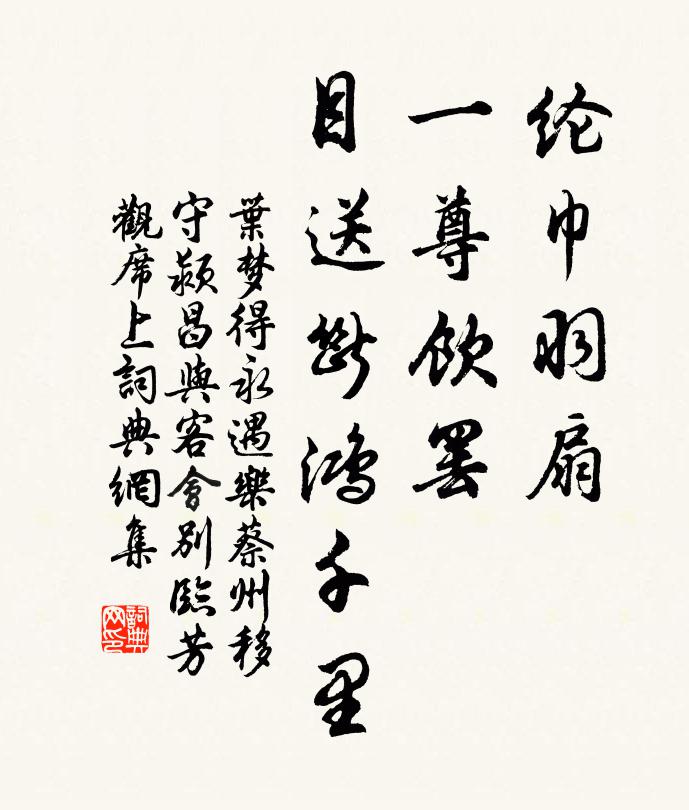 纶巾羽扇
一尊饮罢
目送断鸿千里
葉梦得永遇樂蔡州移
守颍昌與客會别臨芳
觀席上詞典網集
詞典网印